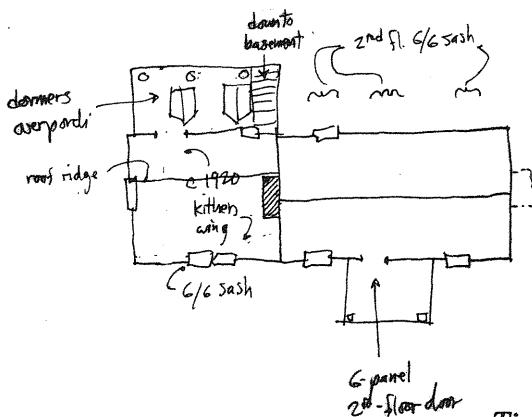 down to
basement
2nd fl. 6/6 sash
dormers
over porch
roof ridge
c 1920
kitchen
wing
6/6 sash
6-panel
2nd-floor door